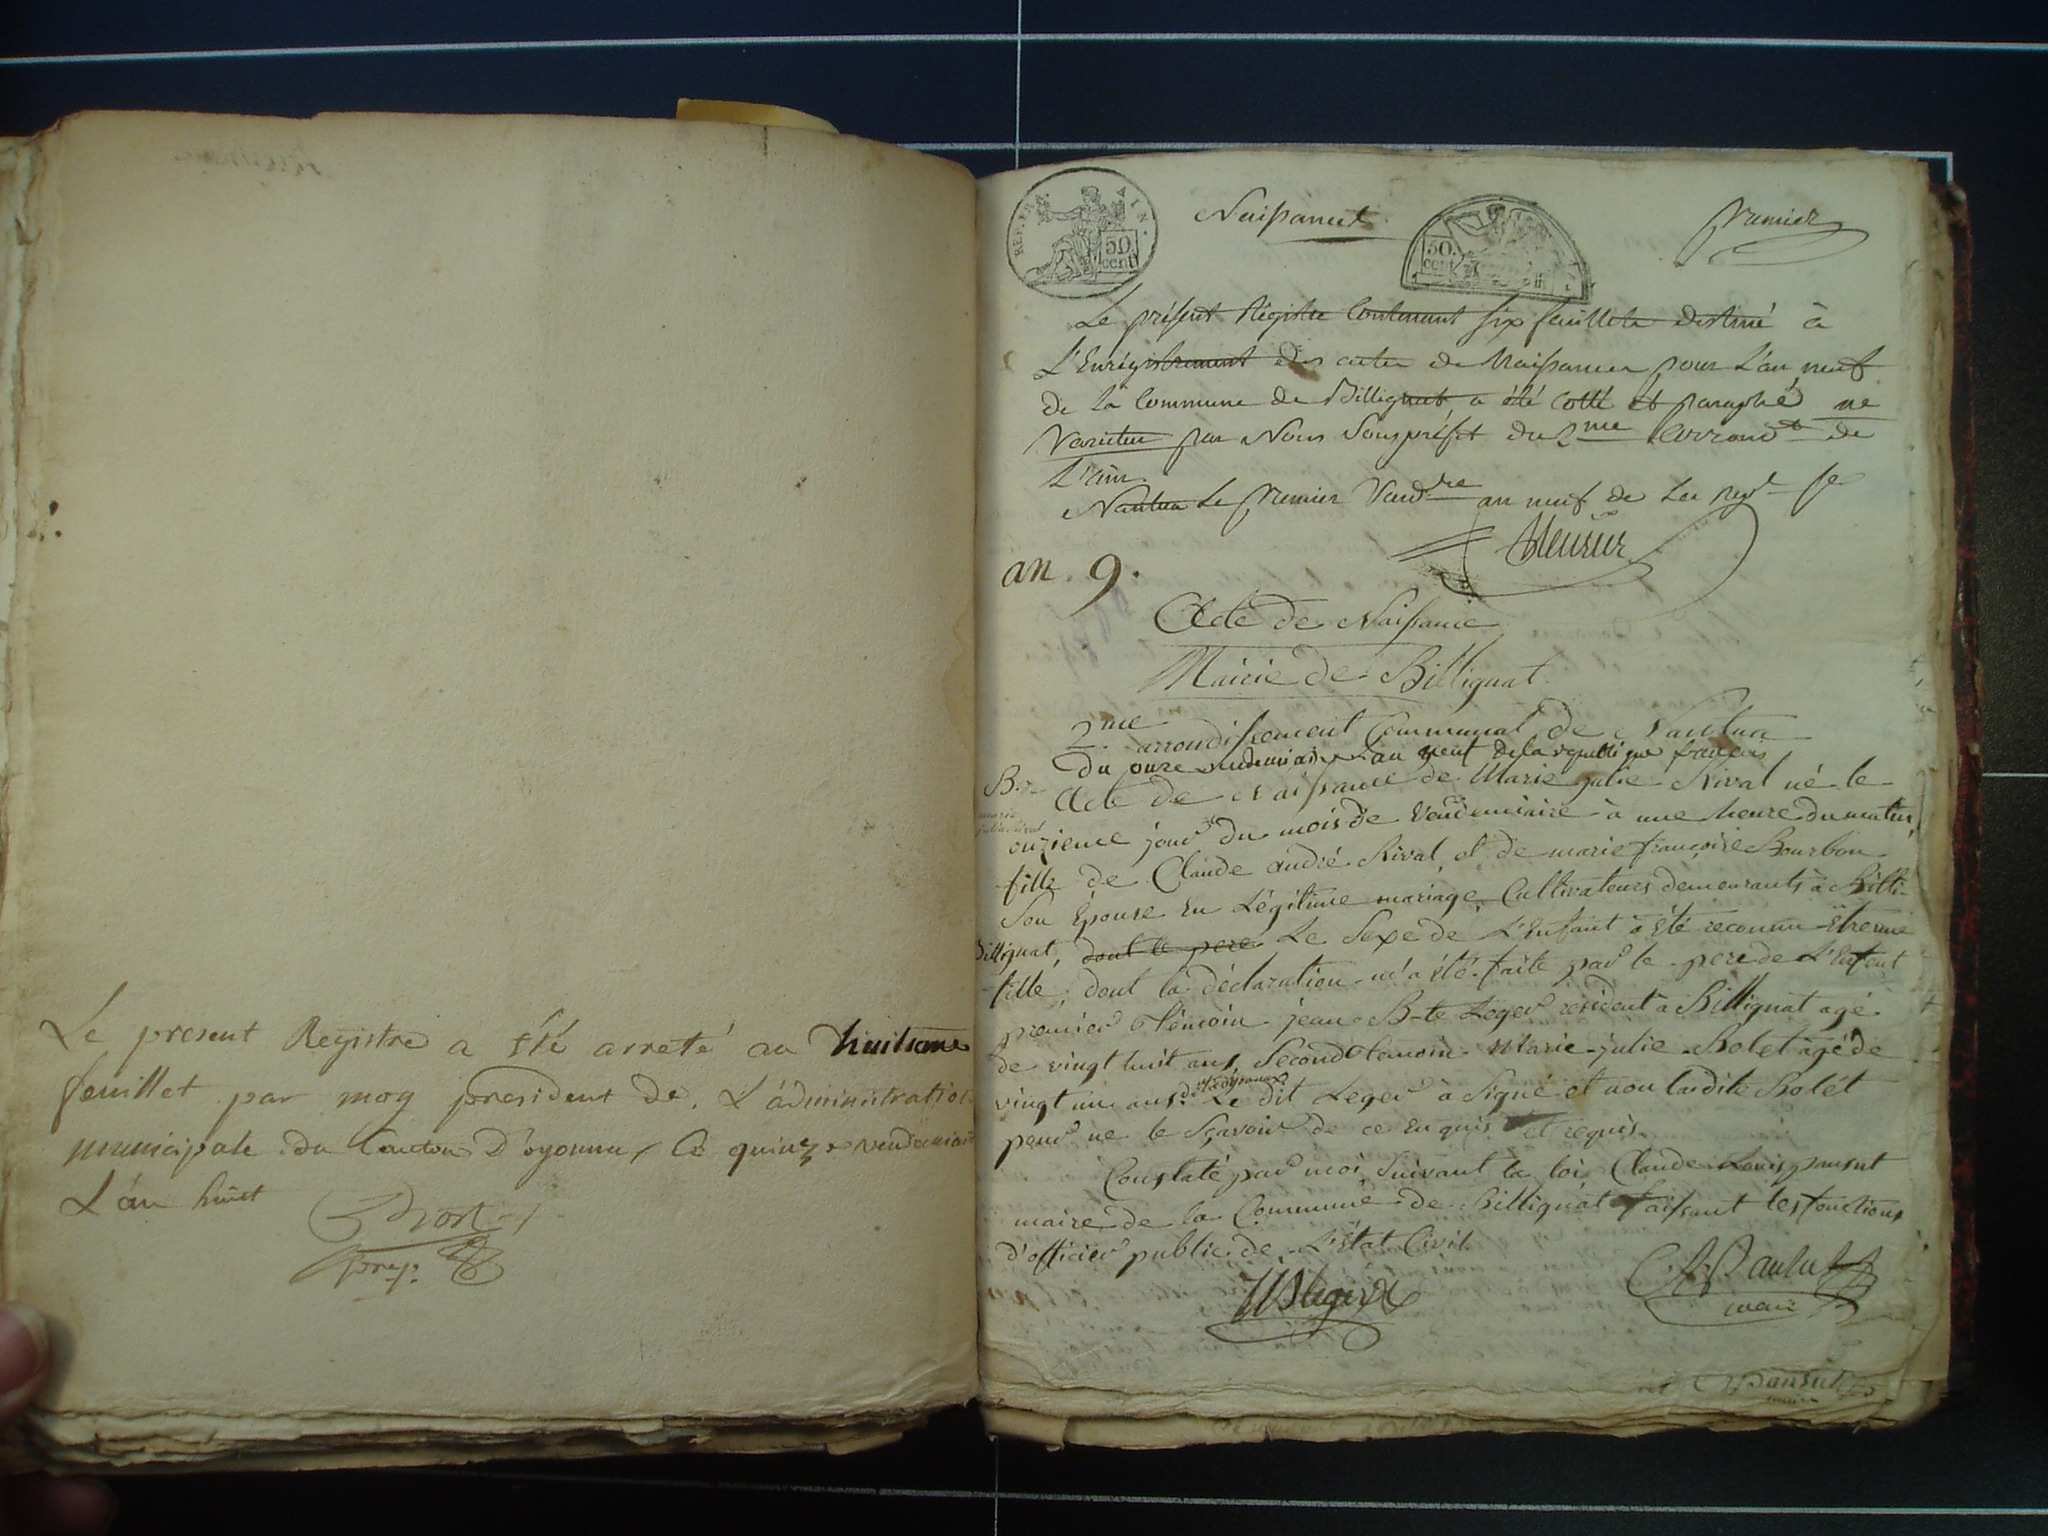 Le present Registre a été arreté au huitieme
feuillet par moy president de L'administration
municipale du Canton D'oyonnax Ce quinze vendemiaire
L'an huit
REP. FRA.
50
cent
Naissances
50
cent
premier
Le présent Régistre Contenant six feuillets destiné à
L'Enrégistrement des actes de Naissances pour L'an neuf
de la Commune de Billignat a été cotté et paraphé ne
Varietur par Nous Souspréfet du 2me arrondt de
L'ain.
Nantua le premier Vendre an neuf de la rep. fe
an. 9.
Acte de Naissance
Mairie de Billignat.
2me arrondissement Communal de Nantua
Du onze vendemiaire l'an neuf de la republique française
Acte de Naissance de Marie julie Rival né le
marie
julie Rival
onzieme jour du mois de Vendemiaire à une heure du matin,
fille de Claude andré Rival et de marie françoise Bourbon
Son Epouse En Légitime mariage, Cultivateurs demeurants à Billi-
Billignat, dont le pere Le Sexe de L'Enfant à été reconnu être une
fille, dont la déclaration m'a été faite par le pere de L'Enfant
premier Témoin jean B-te Leger résident à Billignat agé
de vingt huit ans, Second temoin Marie julie Rolet agé de
vingt un ans d'oyonnax Le dit Leger à Signé et non ladite Rolét
pour ne le Sçavoir de ce Enquis et requis.
Constaté par moi Suivant la loi Claude Louis pansut
maire de la Commune de Billignat faisant les fonctions
d'officier public de L'état Civil.
JB leger
Pansut
maire
Pansut